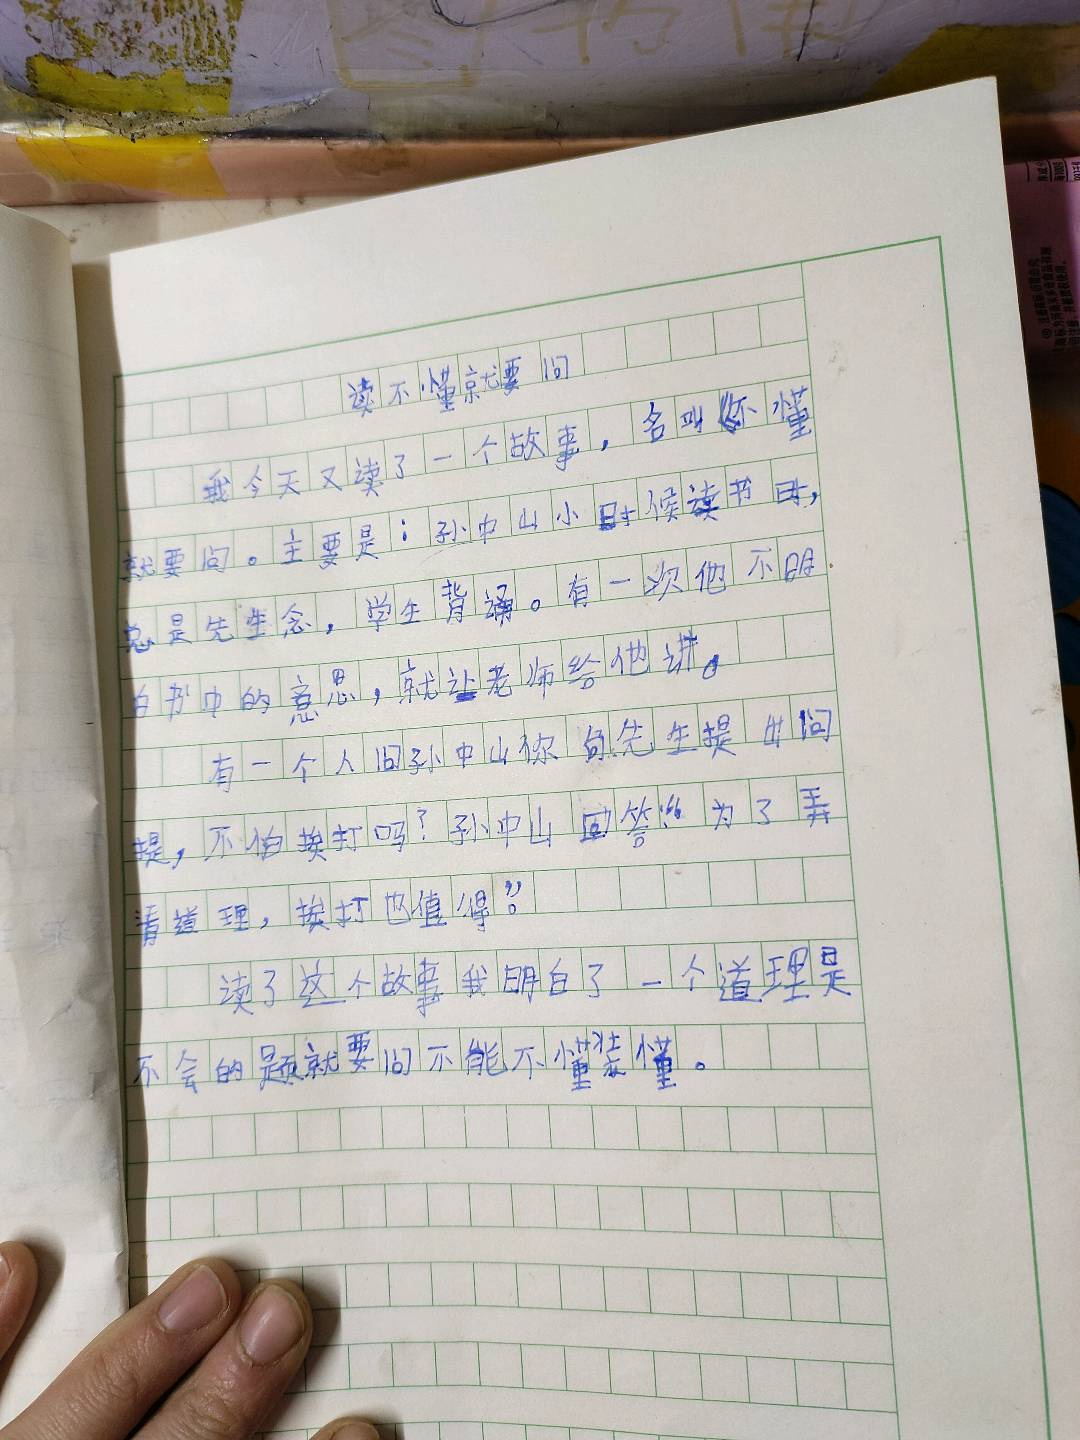 读不懂就要问
我今天又读了一个故事，名叫《不懂
就要问。主要是：孙中山小时候读书时，
总是先生念，学生背诵。有一次他不明
白书中的意思，就让老师给他讲。
有一个人问孙中山你向先生提出问
提，不怕挨打吗？孙中山回答：“为了弄
清道理，挨打也值得”。
读了这个故事我明白了一个道理是
不会的题就要问不能不懂装懂。